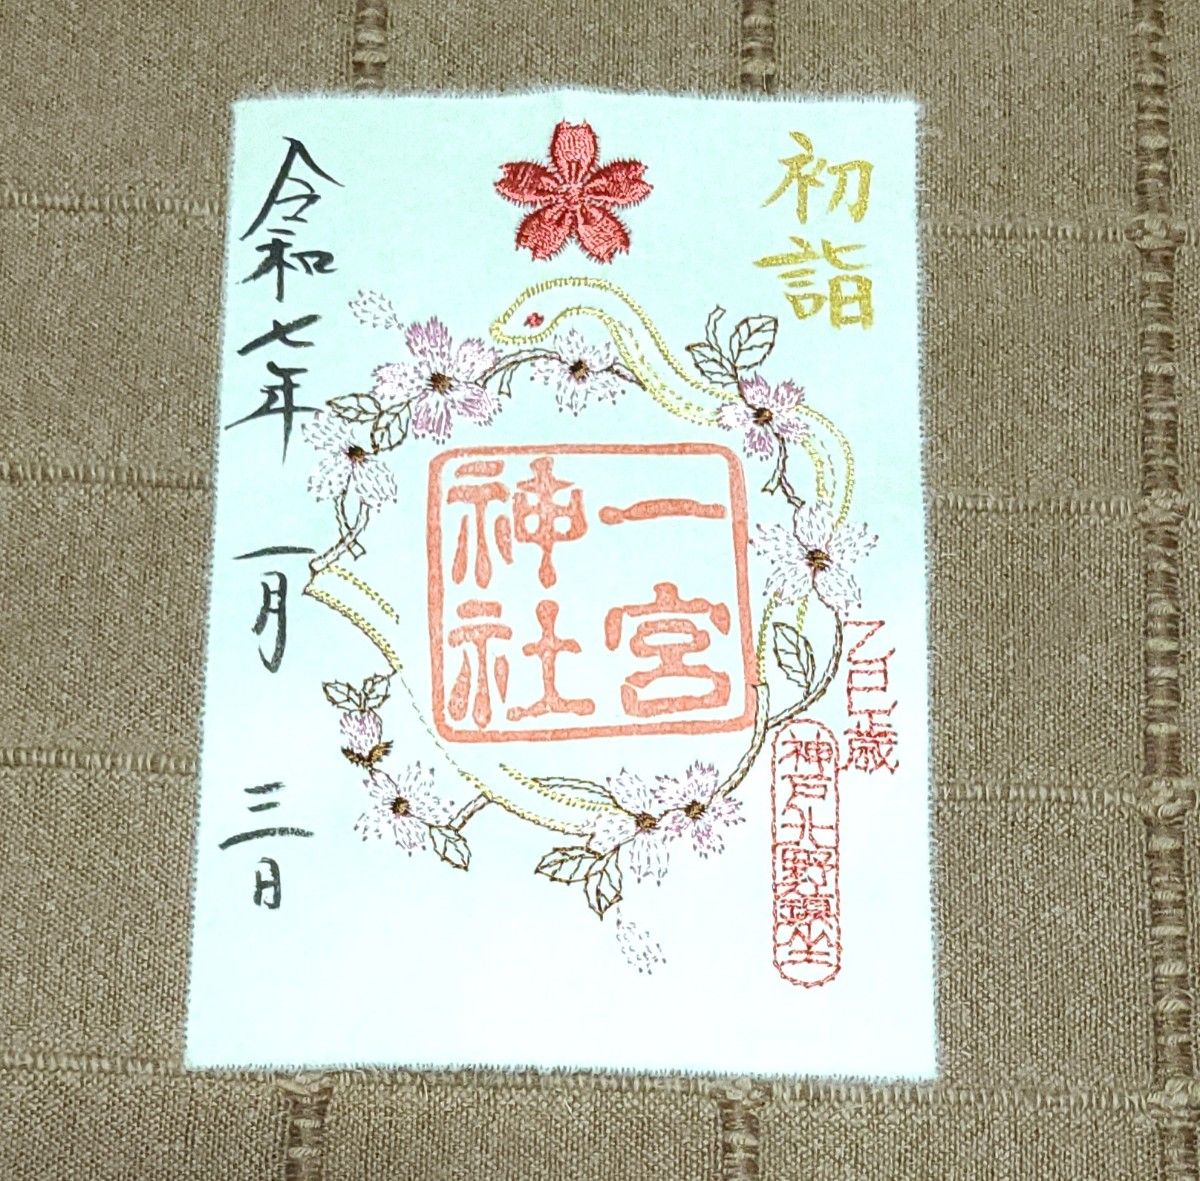 初詣
乙巳歳
神戸北野鎮坐
一宮
神社
令和七年 一月 三日